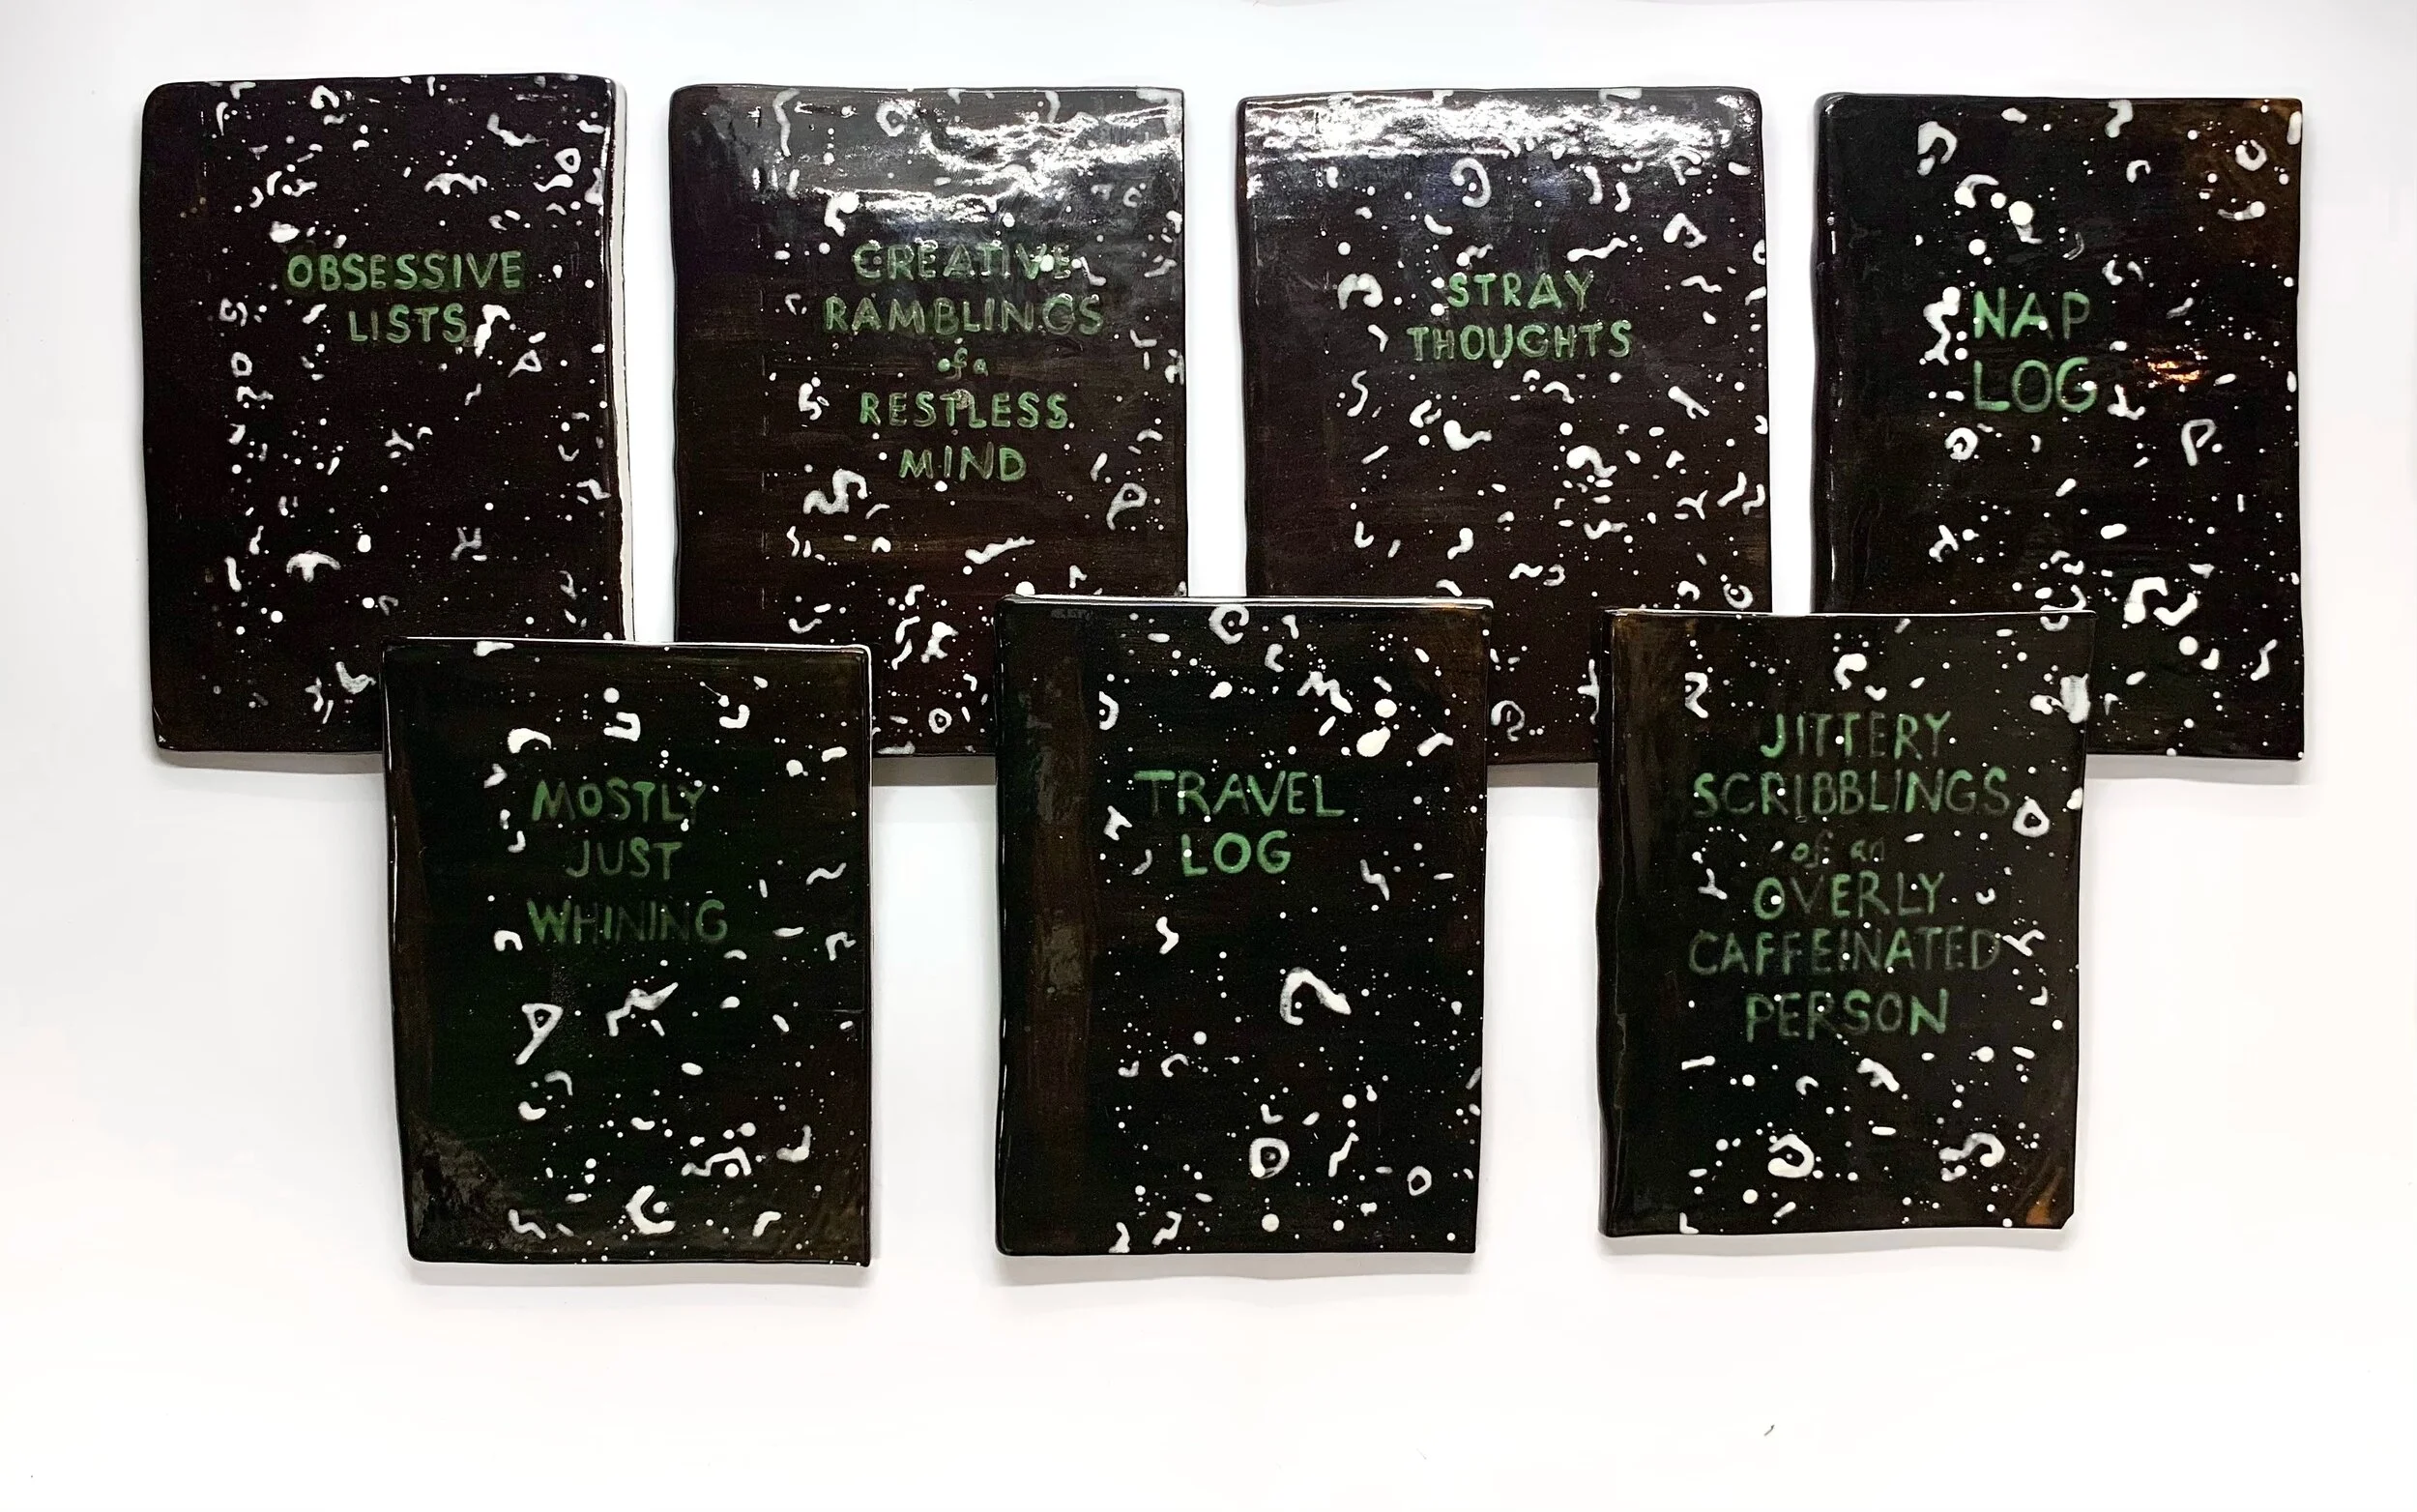 OBSESSIVE
LISTS
CREATIVE
RAMBLINGS
of a
RESTLESS
MIND
STRAY
THOUGHTS
NAP
LOG
MOSTLY
JUST
WHINING
TRAVEL
LOG
JITTERY
SCRIBBLINGS
of an
OVERLY
CAFFEINATED
PERSON